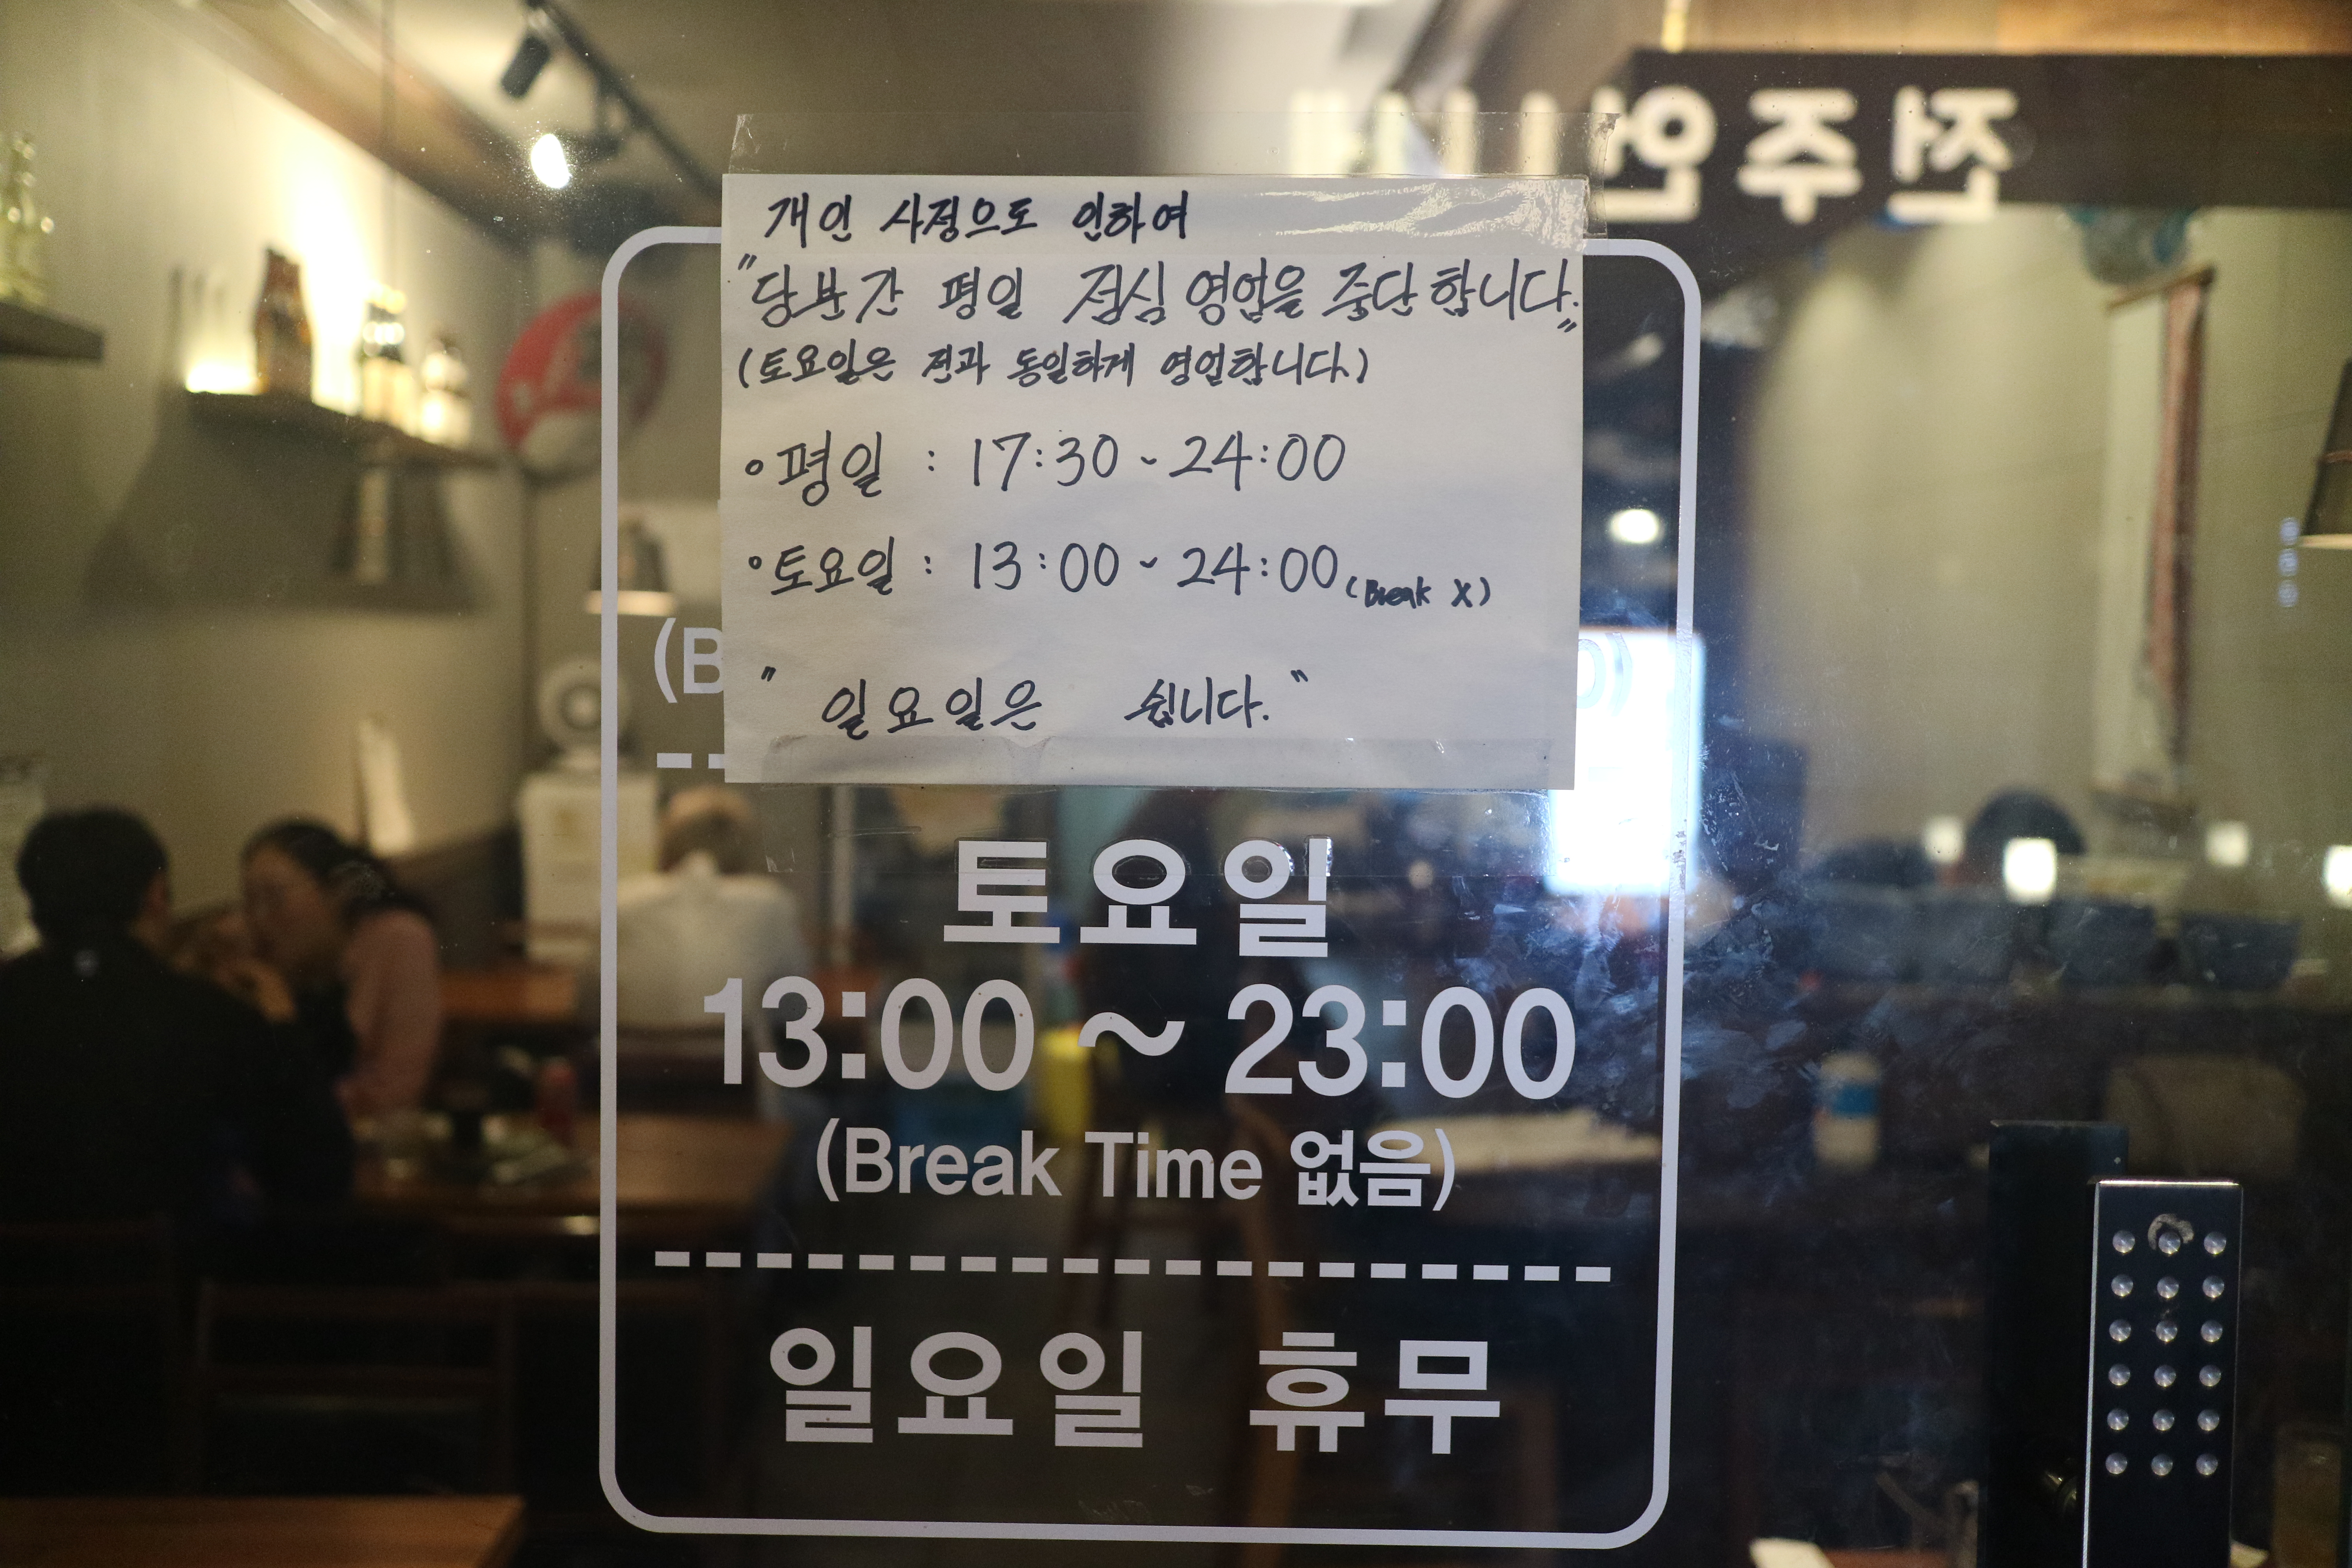 전주안
개인 사정으로 인하여
"당분간 평일 점심 영업을 중단합니다."
(토요일은 전과 동일하게 영업합니다.)
• 평일 : 17:30 ~ 24:00
• 토요일 : 13:00 ~ 24:00 (Break X)
" 일요일은 쉽니다. "
(B
토요일
13:00 ~ 23:00
(Break Time 없음)
일요일 휴무